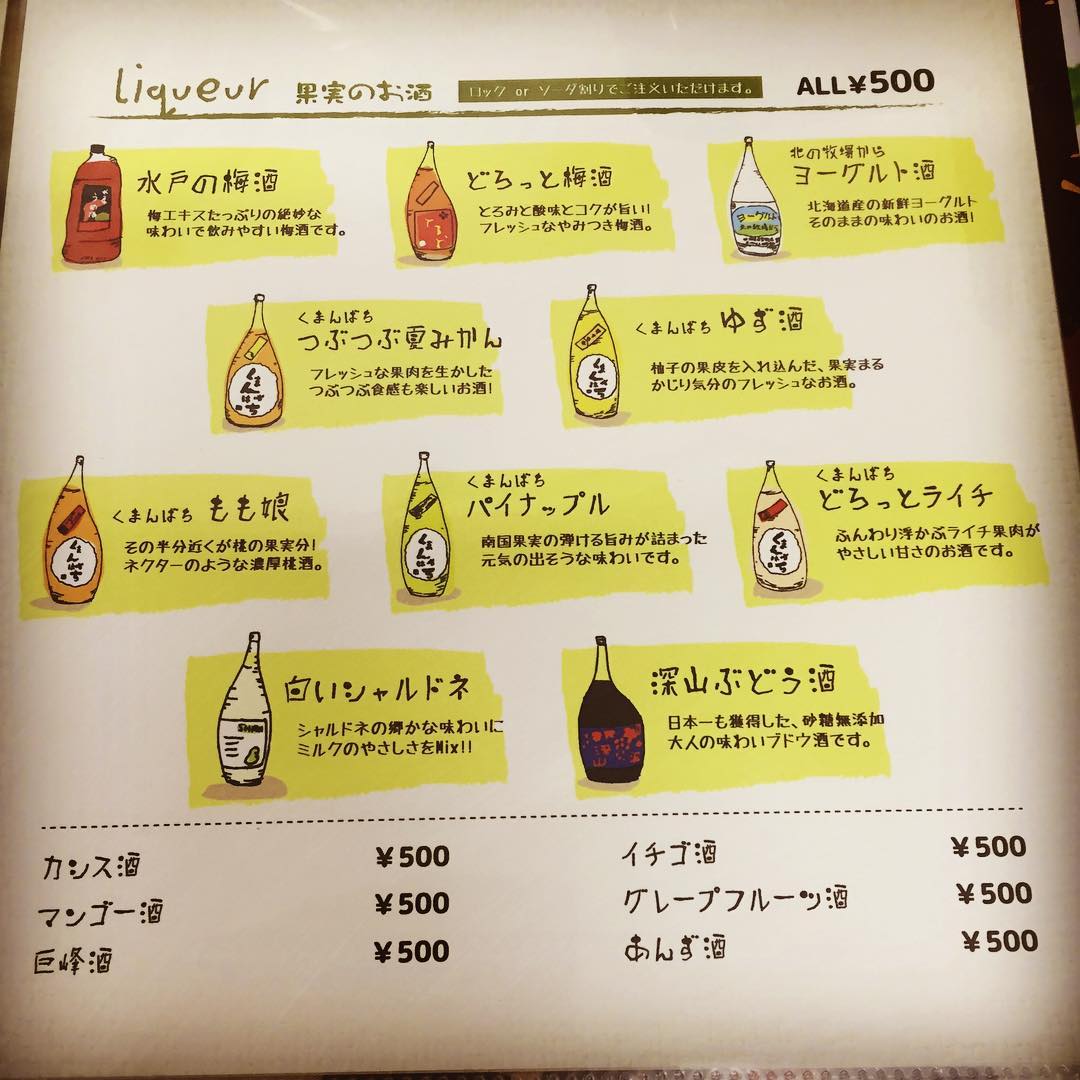 liqueur 果実のお酒 ロック or ソーダ割りでご注文いただけます。 ALL¥500
水戸の梅酒
梅エキスたっぷりの絶妙な
味わいで飲みやすい梅酒です。
どろっと梅酒
とろみと酸味とコクが旨い!
フレッシュなやみつき梅酒。
北の牧場から
ヨーグルト酒
北海道産の新鮮ヨーグルト
そのままの味わいのお酒!
ヨーグルト
くまんばち
つぶつぶ夏みかん
フレッシュな果肉を生かした
つぶつぶ食感も楽しいお酒!
くまんばち
くまんばち ゆず酒
柚子の果皮を入れ込んだ、果実まる
かじり気分のフレッシュなお酒。
くまんばち
くまんばち もも娘
その半分近くが桃の果実分!
ネクターのような濃厚桃酒。
くまんばち
くまんばち
パイナップル
南国果実の弾ける旨みが詰まった
元気の出そうな味わいです。
くまんばち
くまんばち
どろっとライチ
ふんわり浮かぶライチ果肉が
やさしい甘さのお酒です。
くまんばち
白いシャルドネ
シャルドネの郷かな味わいに
ミルクのやさしさをMix!!
深山ぶどう酒
日本一も獲得した、砂糖無添加
大人の味わいブドウ酒です。
深山
カシス酒 ¥500
イチゴ酒 ¥500
マンゴー酒 ¥500
グレープフルーツ酒 ¥500
巨峰酒 ¥500
あんず酒 ¥500